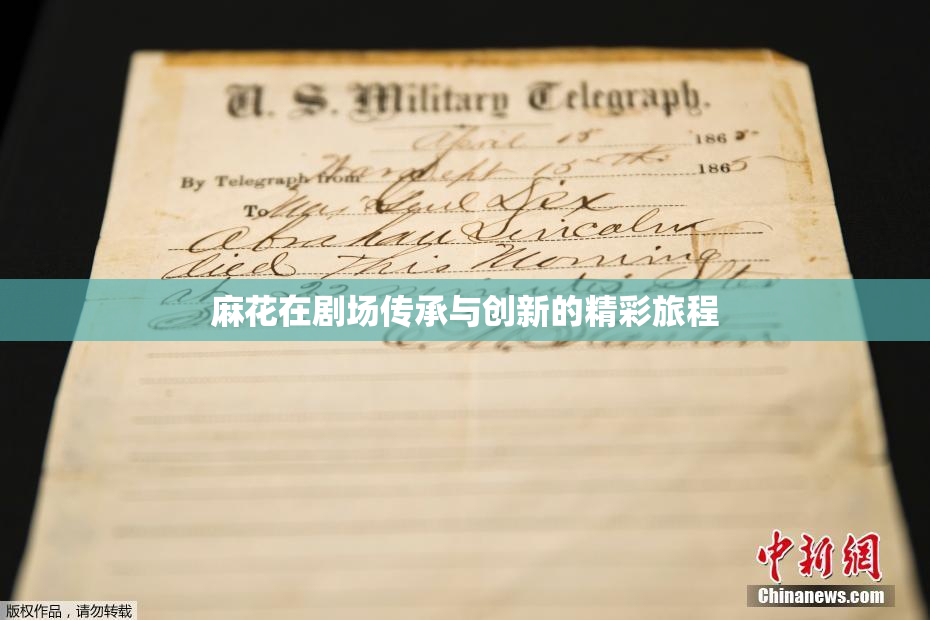 U. S. Military Telegraph.
April 15 1865
By Telegraph from War Dept 15th 1865
To Maj Genl Dix
Abraham Lincoln
died This Morning
at 22 minutes after
麻花在剧场传承与创新的精彩旅程
E. M. Stanton
中新网
Chinanews.com
版权作品，请勿转载